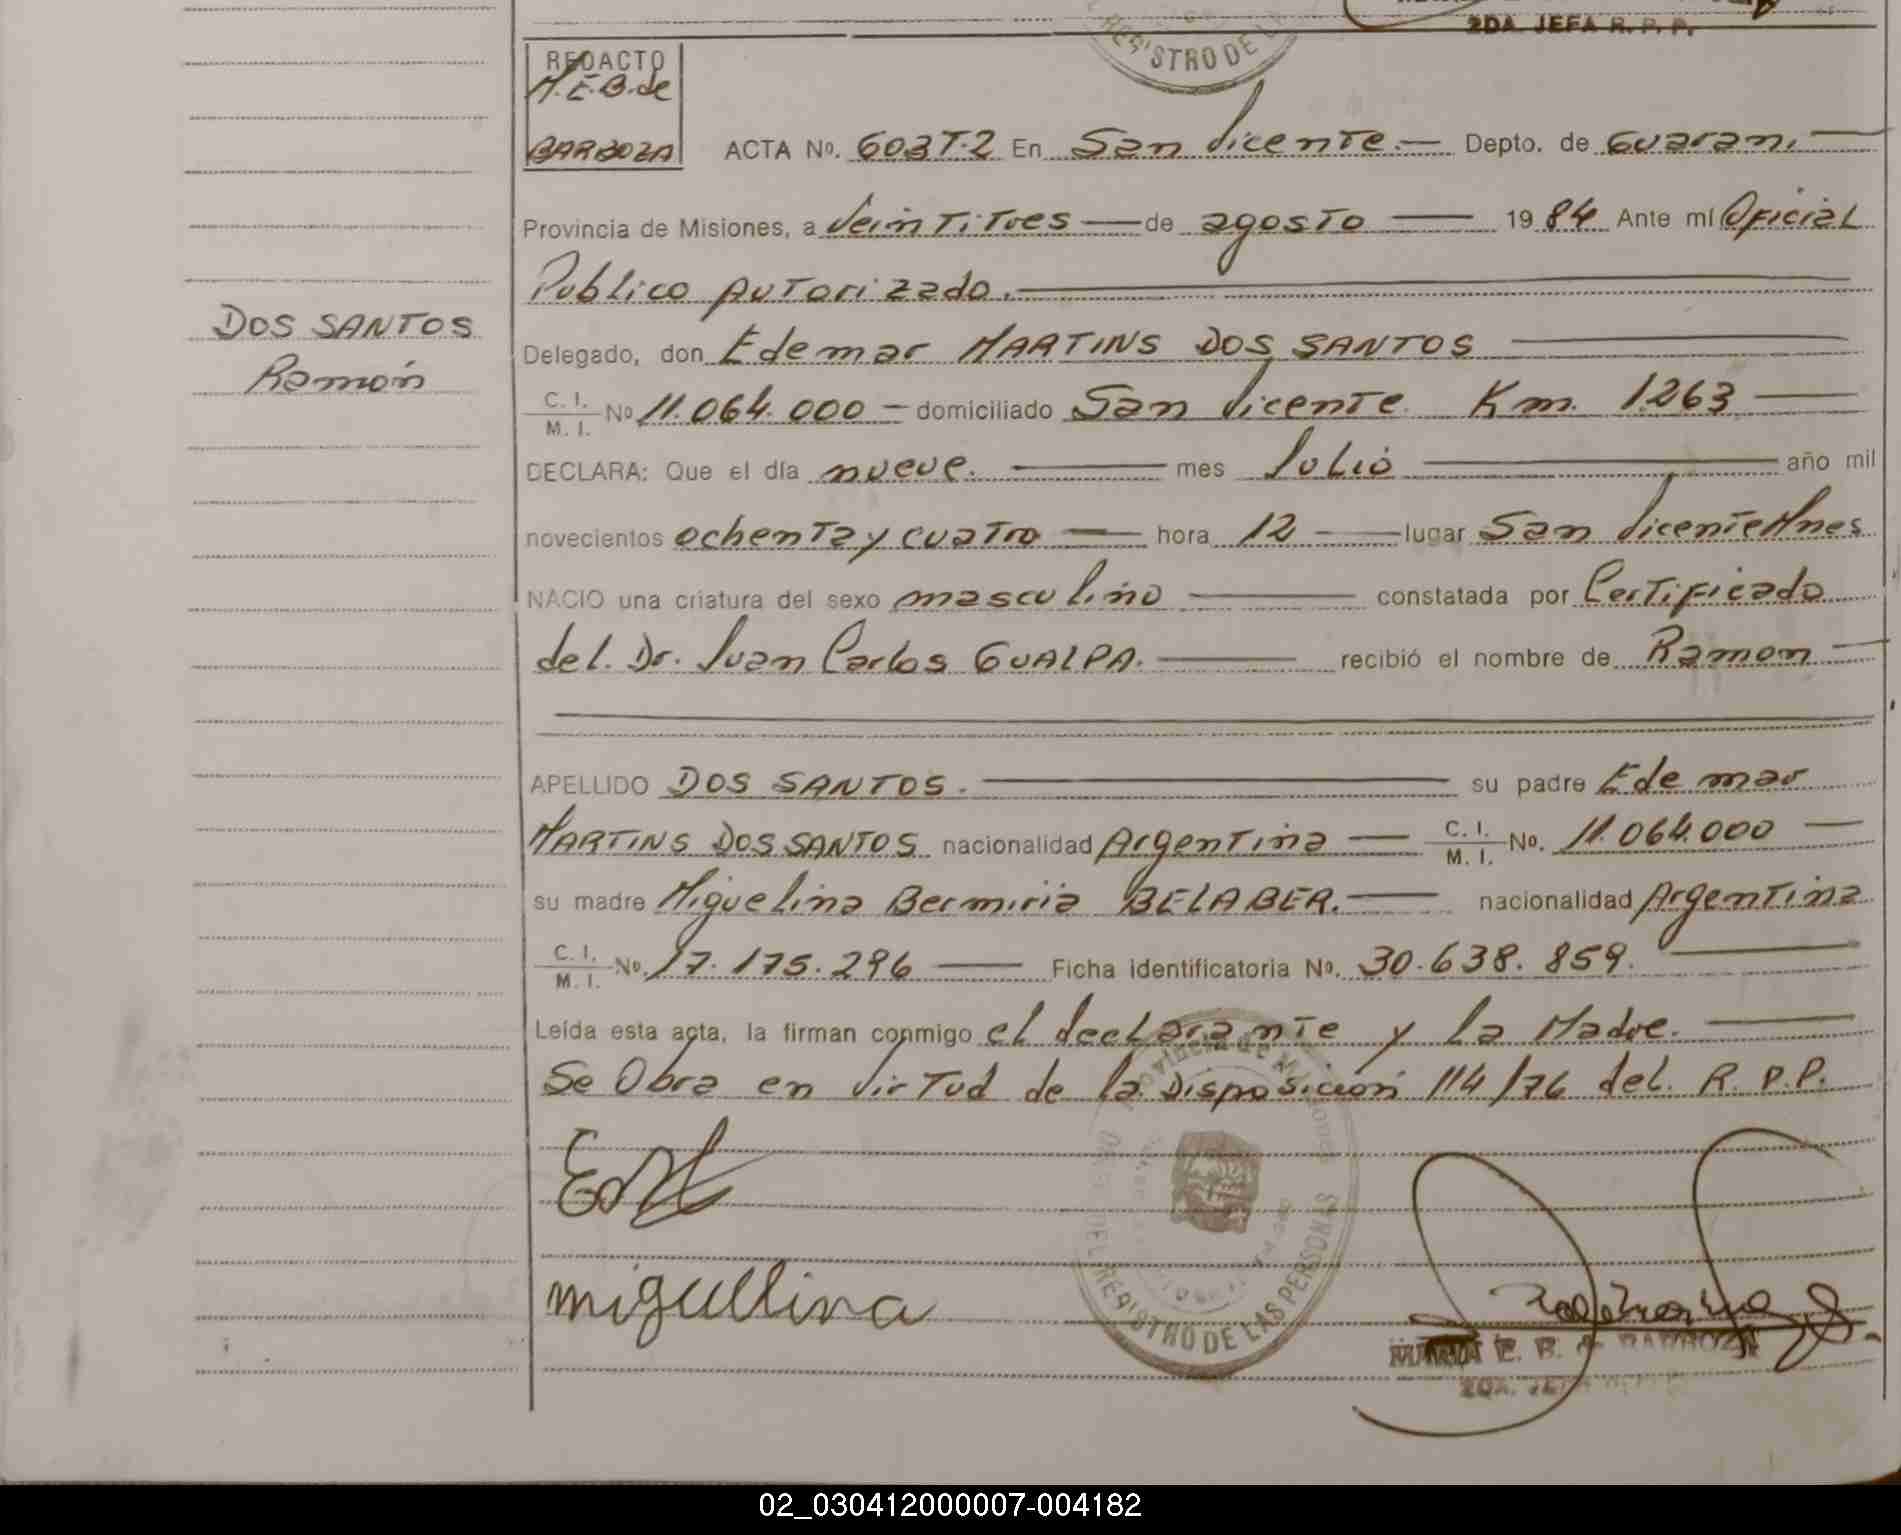 2DA. JEFA R. P. P.
REGISTRO DE L
REDACTO
M.E.B. de
BARBOZA
ACTA No. 603T.2 En San Vicente.— Depto. de Guaraní —
Provincia de Misiones, a Veintitres — de agosto — 1984 Ante mí Oficial
Publico Autorizado. —
DOS SANTOS
Ramón
Delegado, don Edemar MARTINS DOS SANTOS —
C. I. / M. I. No 11.064.000 — domiciliado San Vicente Km. 1263 —
DECLARA: Que el día nueve. — mes Julio — año mil
novecientos ochenta y cuatro — hora 12 — lugar San Vicente Mnes.
NACIO una criatura del sexo masculino — constatada por Certificado
del. Dr. Juan Carlos GUALPA. — recibió el nombre de Ramon —
APELLIDO DOS SANTOS. — su padre Edemar
MARTINS DOS SANTOS nacionalidad Argentina — C. I. / M. I. No. 11.064.000 —
su madre Miguelina Bermiria BELABER. — nacionalidad Argentina
C. I. / M. I. No. 17.175.296 — Ficha identificatoria No. 30.638.859. —
Leída esta acta, la firman conmigo el declarante y la Madre. —
Se Obra en virtud de la Disposición 114/76 del. R.P.P.
Provincia de Misiones
DEL REGISTRO DE LAS PERSONAS
miguellina
MARIA E. B. de BARBOZA
2DA. JEFA
02_030412000007-004182